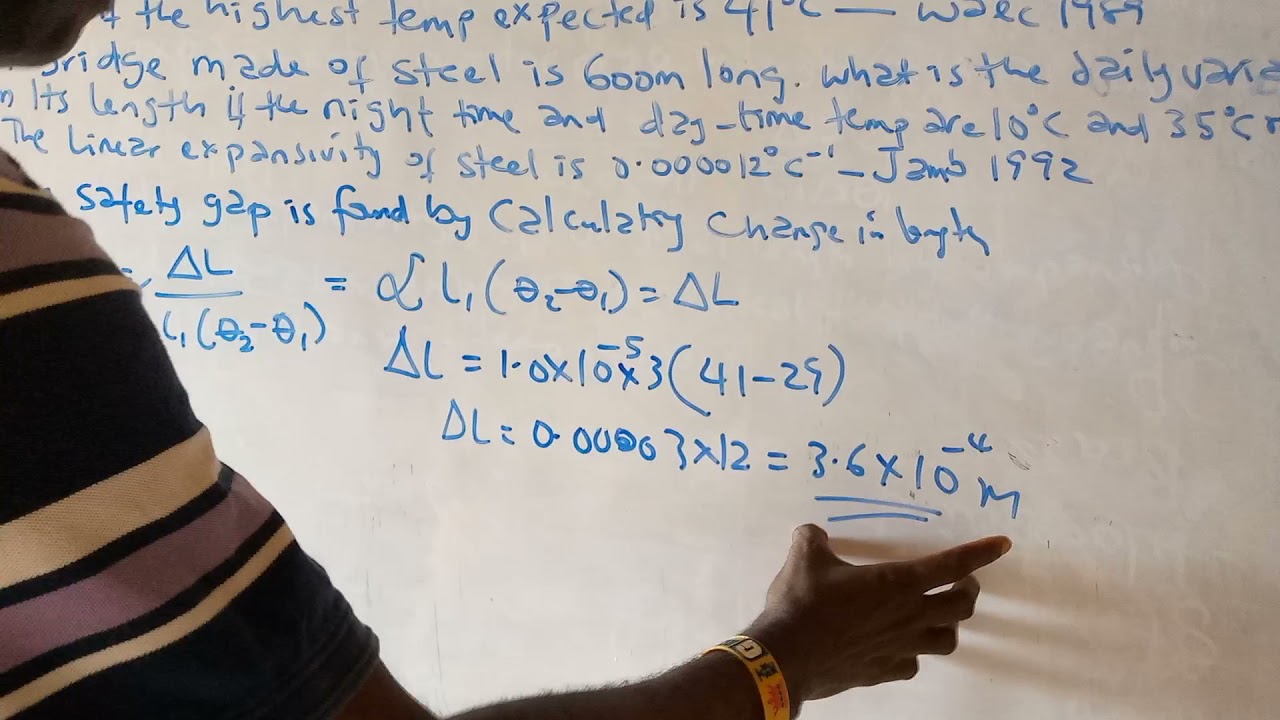 f the highest temp expected is 41°C — Waec 1989
Bridge made of steel is 600m long. what is the daily varia
n Its length if the night time and day-time temp are 10°C and 35°C r
The linear expansivity of steel is 0.000012°C⁻¹ – Jamb 1992
Safety gap is found by Calculating Change in length
ΔL / L₁(θ₂-θ₁) = α L₁(θ₂-θ₁) = ΔL
ΔL = 1.0x10⁻⁵x3(41-29)
ΔL = 0.00003x12 = 3.6x10⁻⁴ m